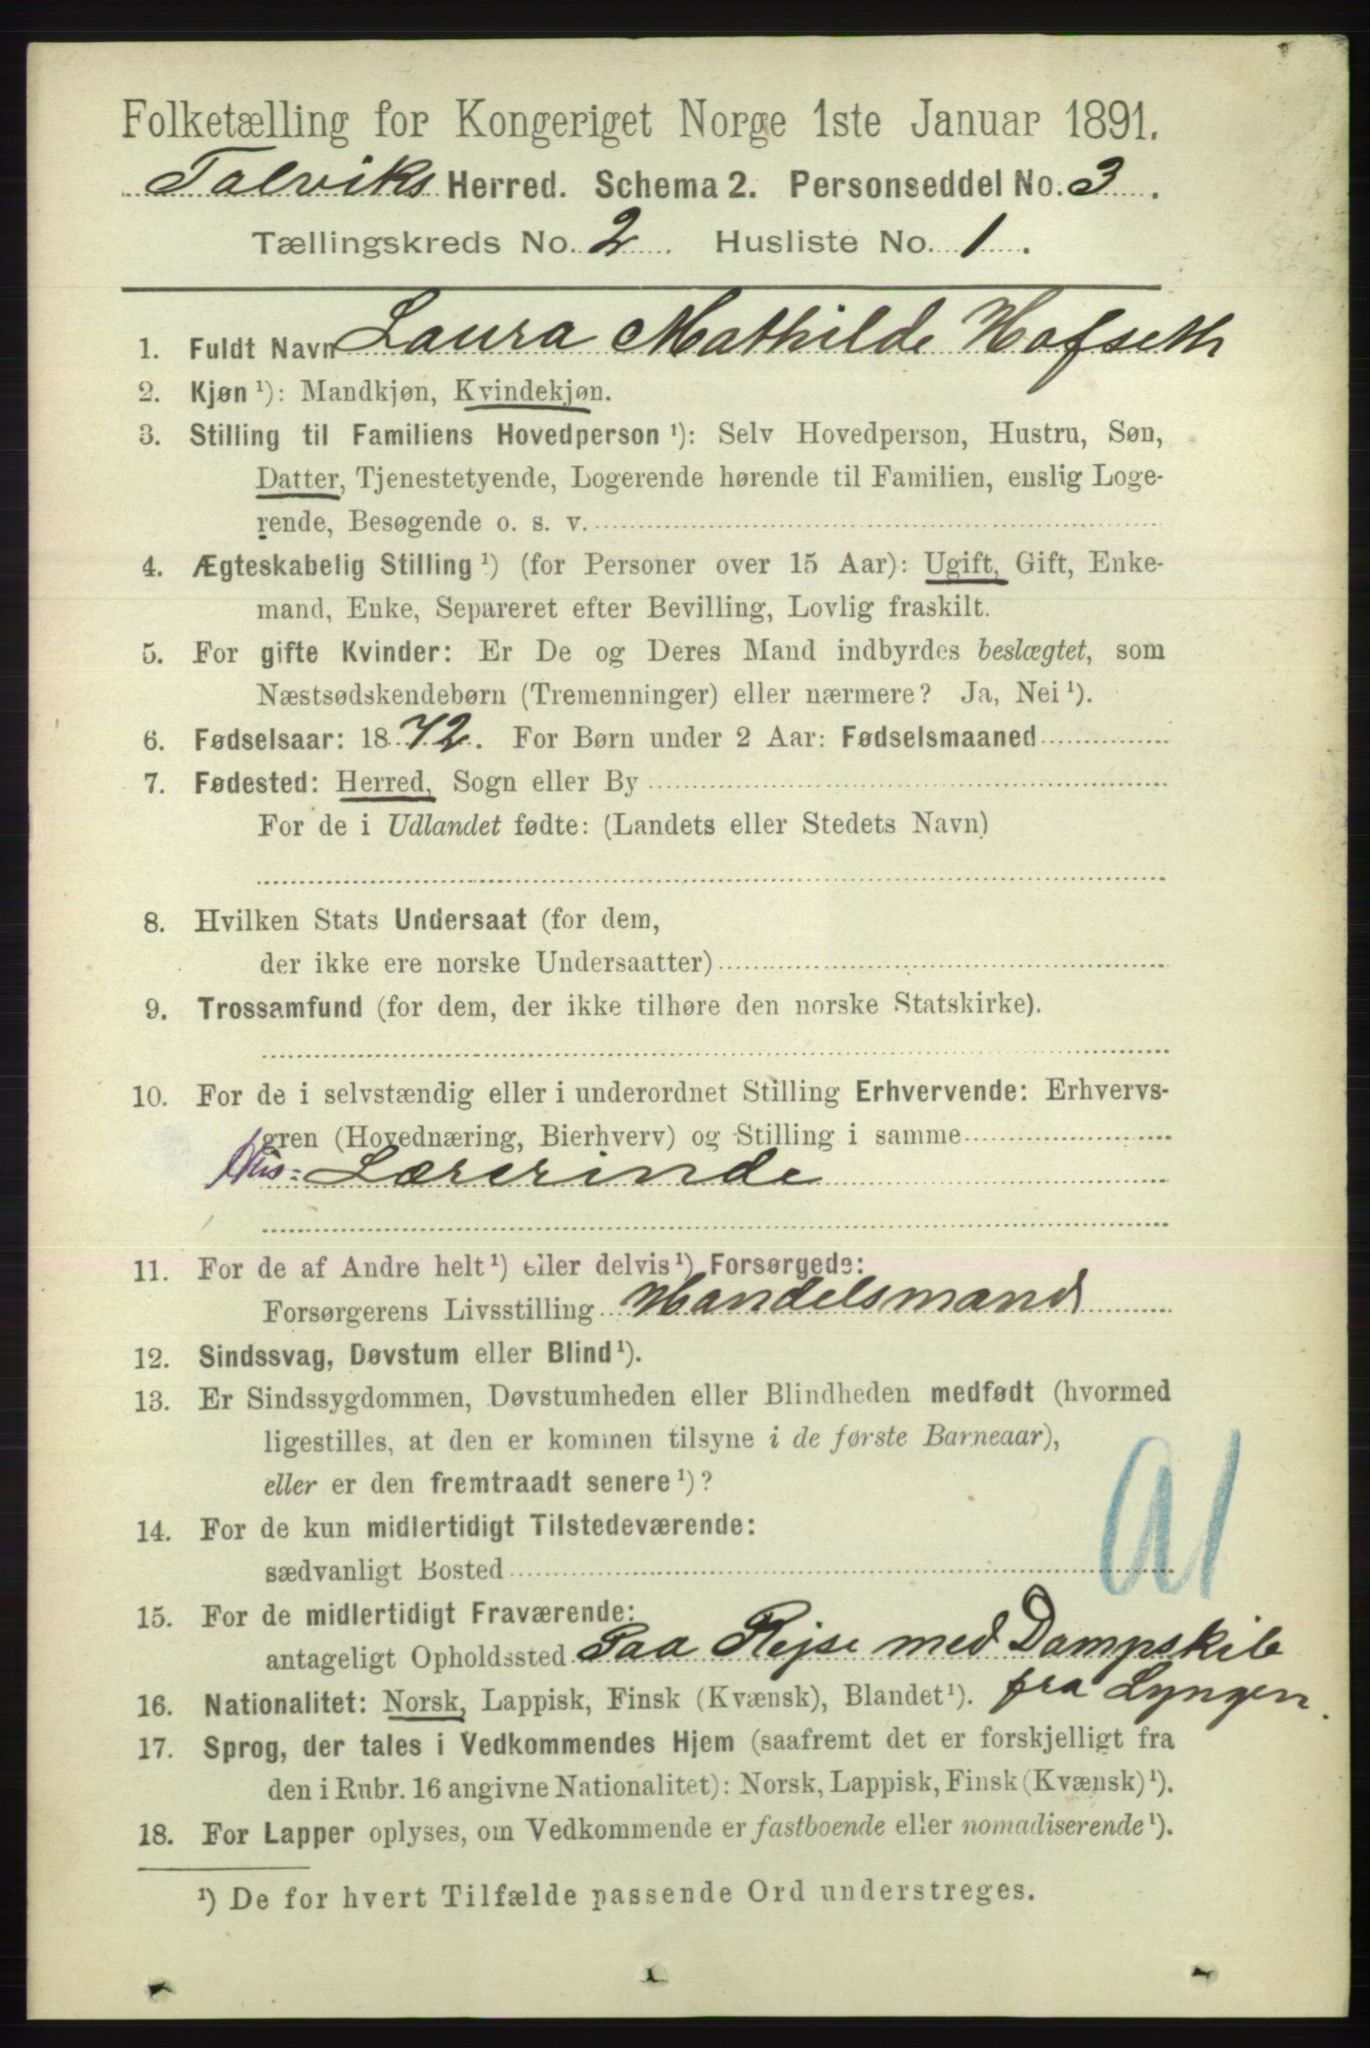 Folketælling for Kongeriget Norge 1ste Januar 1891.
Talviks Herred. Schema 2. Personseddel No. 3.
Tællingskreds No. 2 Husliste No. 1.
1. Fuldt Navn Laura Mathilde Hofseth
2. Kjøn ¹): Mandkjøn, Kvindekjøn.
3. Stilling til Familiens Hovedperson ¹): Selv Hovedperson, Hustru, Søn,
Datter, Tjenestetyende, Logerende hørende til Familien, enslig Loge-
rende, Besøgende o. s. v.
4. Ægteskabelig Stilling ¹) (for Personer over 15 Aar): Ugift, Gift, Enke-
mand, Enke, Separeret efter Bevilling, Lovlig fraskilt.
5. For gifte Kvinder: Er De og Deres Mand indbyrdes beslægtet, som
Næstsødskendebørn (Tremenninger) eller nærmere? Ja, Nei ¹).
6. Fødselsaar: 1872. For Børn under 2 Aar: Fødselsmaaned
7. Fødested: Herred, Sogn eller By
For de i Udlandet fødte: (Landets eller Stedets Navn)
8. Hvilken Stats Undersaat (for dem,
der ikke ere norske Undersaatter)
9. Trossamfund (for dem, der ikke tilhøre den norske Statskirke).
10. For de i selvstændig eller i underordnet Stilling Erhvervende: Erhvervs-
gren (Hovednæring, Bierhverv) og Stilling i samme
Hus= Lærerinde
11. For de af Andre helt ¹) eller delvis ¹) Forsørgede:
Forsørgerens Livsstilling Handelsmand
12. Sindssvag, Døvstum eller Blind ¹).
13. Er Sindssygdommen, Døvstumheden eller Blindheden medfødt (hvormed
ligestilles, at den er kommen tilsyne i de første Barneaar),
eller er den fremtraadt senere ¹)?
14. For de kun midlertidigt Tilstedeværende:
sædvanligt Bosted
15. For de midlertidigt Fraværende:
antageligt Opholdssted Paa Rejse med Dampskib
fra Lyngen.
16. Nationalitet: Norsk, Lappisk, Finsk (Kvænsk), Blandet ¹).
17. Sprog, der tales i Vedkommendes Hjem (saafremt det er forskjelligt fra
den i Rubr. 16 angivne Nationalitet): Norsk, Lappisk, Finsk (Kvænsk) ¹).
18. For Lapper oplyses, om Vedkommende er fastboende eller nomadiserende ¹).
¹) De for hvert Tilfælde passende Ord understreges.